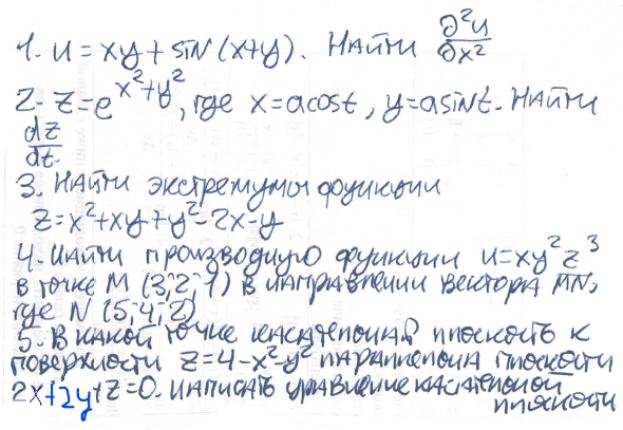 1. u = xy + sin (x+y). Найти ∂²u/∂x²
2. z = e^(x²+y²), где x = acost, y = asint. Найти
dz/dt.
3. Найти экстремумы функции
z = x² + xy + y² - 2x - y
4. Найти производную функции u = xy²z³
в точке M (3; 2; 1) в направлении вектора MN,
где N (5; 4; 2)
5. В какой точке касательная плоскость к
поверхности z = 4 - x² - y² параллельна плоскости
2x + 2y + z = 0. Написать уравнение касательной
плоскости